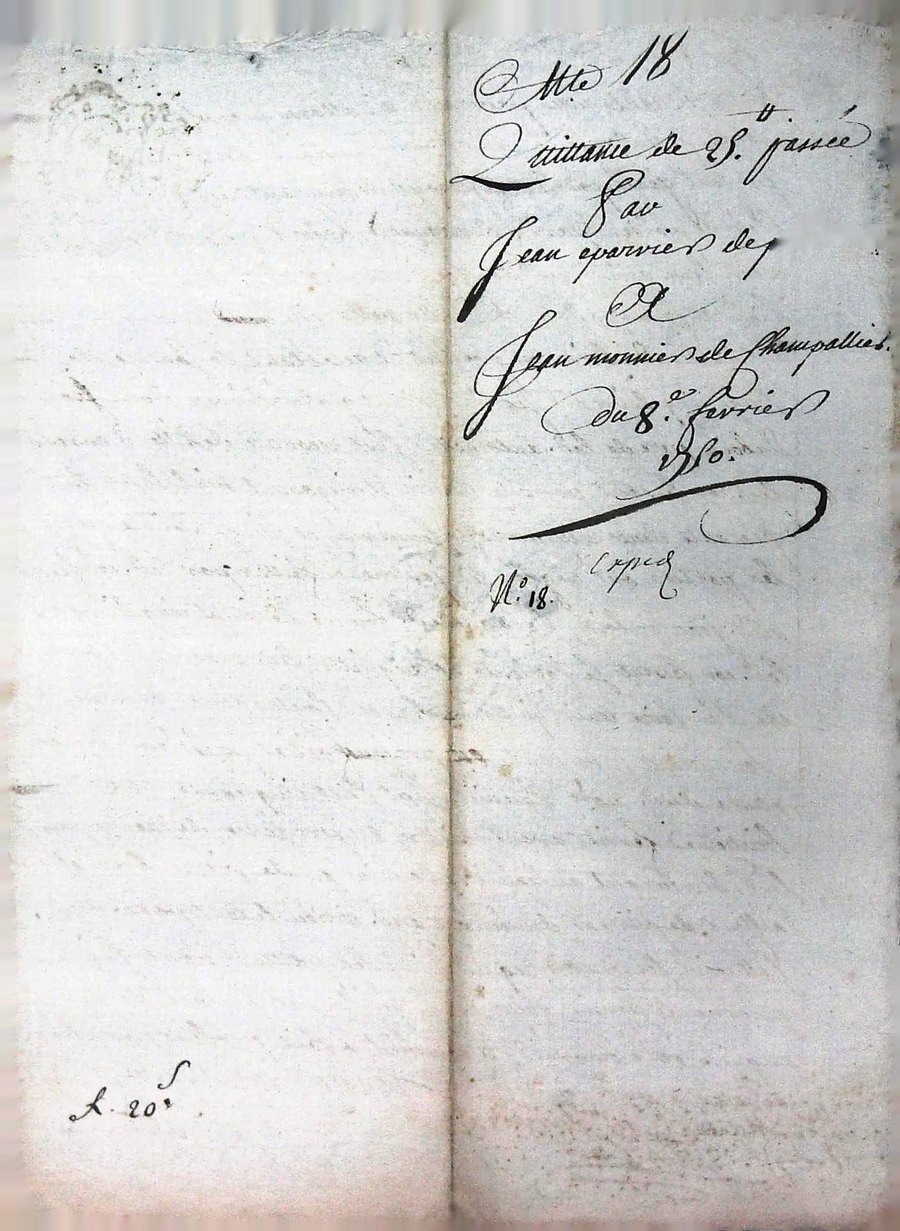 Cotte 18
Quittance de 25.ᵗᵗ passée
Par
Jean eparvier de
A
Jean monnier de Champallier.
du 8.e fevrier
1750.
expéd
N.o 18.
A. 20 s